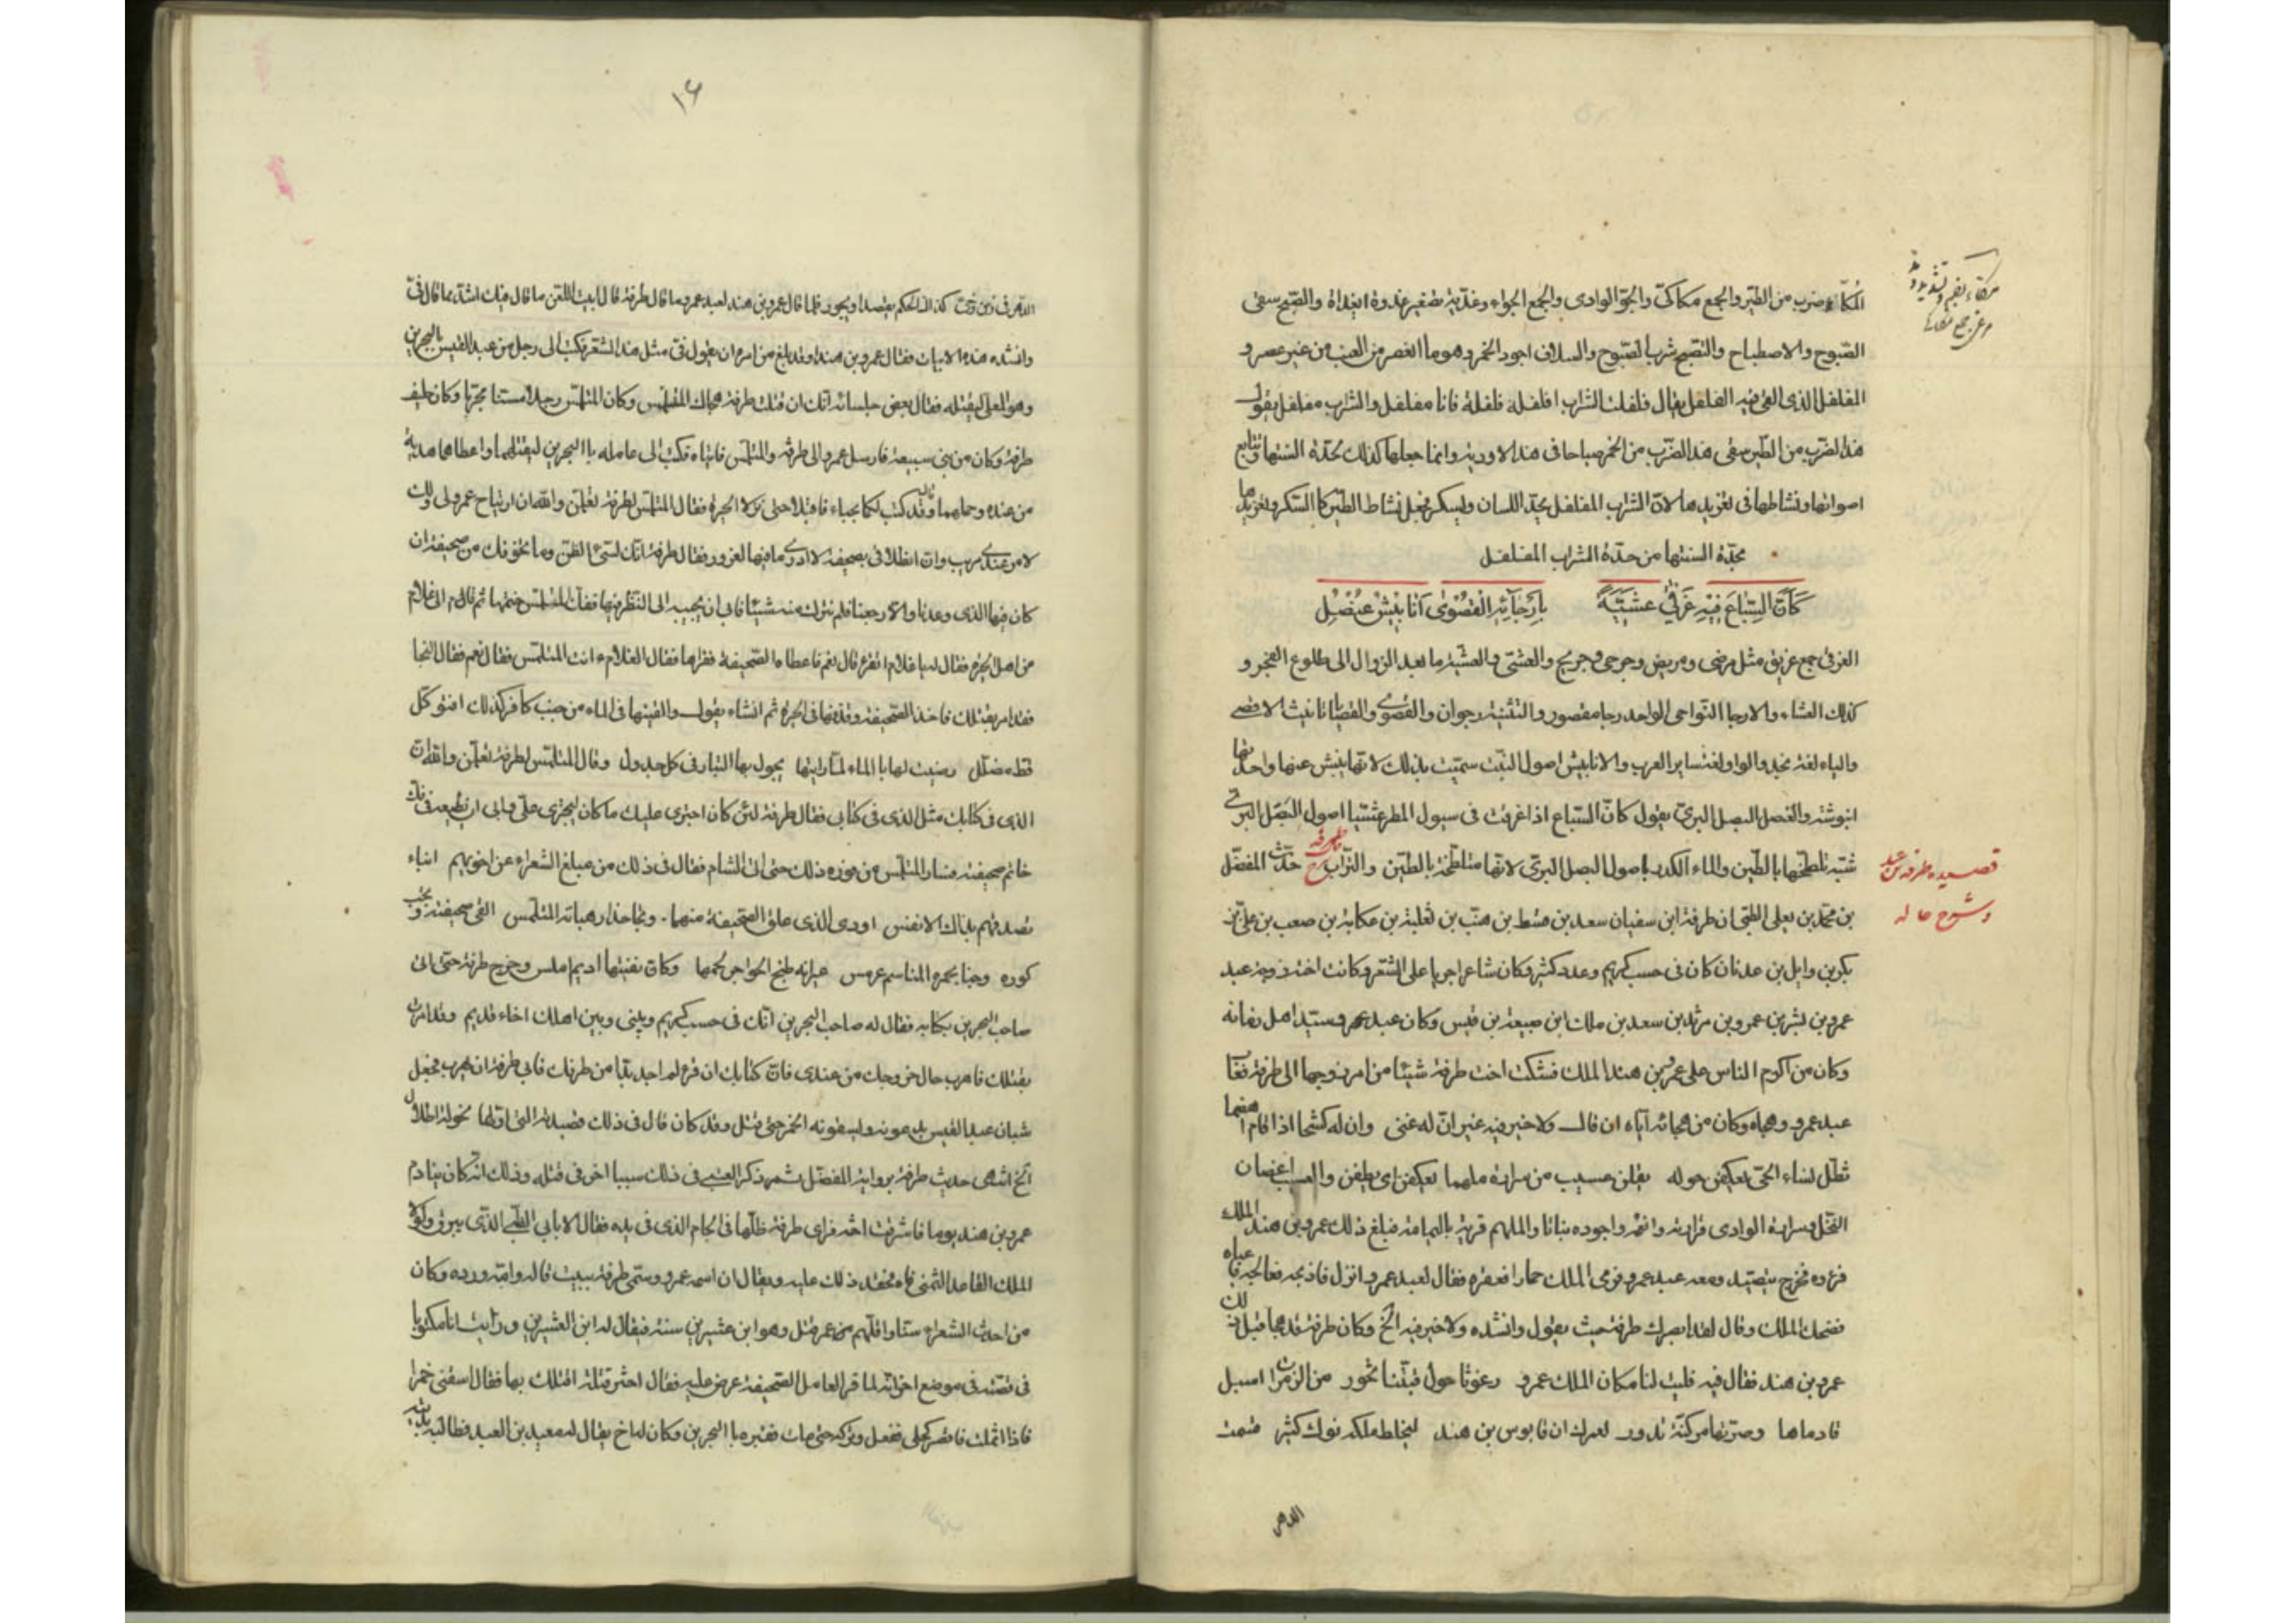 المكاء ضرب من الطير والجمع مكاكىّ والجوّ الوادى والجمع الجواء وغديّة تصغير غدوة او غداة والصبح سقى
الصّبوح والاصطباح والتصبح شرب الصّبوح والسلاف اجود الخمر وهو ما انعصر من العنب من غير عصر و
المفلفل الذى القى فيه الفلفل يقال فلفلت الشراب افلفله فلفلة فانا مفلفل والشراب مفلفل يقول كان
هذا الضرب من الطير سقى هذا الضرب من الخمر صباحا فى هذه الاودية وانما جعلها كذلك لحدّة السنتها وتتابع
اصواتها ونشاطها فى تغريدها لانّ الشراب المفلفل يحذ اللسان ويسكر فجعل نشاط الطير كالسكر وتغريدها
بحدّة السنتها من حدّة الشراب المفلفل
كَأَنَّ السِّبَاعَ فِيْهِ غَرْقَى عَشِيَّةً بِأَرْجَآئِهِ الْقُصْوٰى اَنَابِيْشُ عُنْصُلِ
الغرقى جمع غريق مثل مرضى ومريض وجرحى وجريح والعشىّ والعشيّة ما بعد الزوال الى طلوع الفجر و
كذلك العشاء والارجا النّواحى الواحد رجا مقصور والتثنية رجوان والقصوى والقصيا تانيث الاقصى
والياء لغة نجد والواو لغة ساير العرب والانابيش اصول النّبت سمّيت بذلك لانّها ينبش عنها واحدتها
انبوشة والعنصل البصل البرىّ يقول كانّ السّباع اذا غرقت فى سيول المطر عشيّا اصول البصل البرىّ
شبّه تلطّخها بالطّين والماء الكدر باصول البصل البرّى لانّها متلطّخة بالطّين والتراب حدّث المفضّل
بن محمّد بن يعلى الضّبى ان طرفة ابن سفيان سعد بن بن ثعلبة بن عكابة بن صعب بن علىّ بن
بكر بن وايل بن عدنان كان فى حسب كريم وعدد كثير وكان شاعرا جريا على الشّعر وكانت اخته زوجة عبد
عمرو بن بشر بن عمرو بن مرثد بن سعد بن ملك ابن ضبيعة بن قيس وكان عبد عمرو سيّد اهل زمانه
وكان من اكرم الناس على عمرو بن هند الملك فشكت اخت طرفة شيئا من امر زوجها الى طرفة فعاب
عبد عمرو وهجاه وكان من هجائه اياه ان قال ولا خير فيه غير انّ له غنى وان له كشحا اذا قام اهضما
تظلّ نساء الحىّ يعكفن حوله يقلن عسيب من سرارة ملهما يعكفن اى يطفن والعسيب اغصان
النّخل وسرارة الوادى قرارته وانعمه واجوده نباتا والملهم قرية باليمامة فبلغ ذلك عمرو بن هند الملك
فخرج يتصيّد ومعه عبد عمرو فرمى الملك حمارا فعقره فقال لعبد عمرو انزل فاذبحه فعالجه فاعياه
فضحك الملك وقال لقد ابصرك طرفة حيث يقول وانشده ولا خير فيه الخ وكان طرفة قد هجا قبل ذلك
عمرو بن هند فقال فيه فليت لنا مكان الملك عمرو رغوثا حول قبّتنا تخور من الزمرات اسبل
قادماها وضرّتها مركنّة تدور لعمرك ان قابوس بن هند ليخلط ملكه نوك كثير قسمت
الدهر
قصيده طرفه بن عبد
وشرح حاله
١٦
الدهر فى زمن رخىّ كذاك الحكم يقصد او يجور فلما قال عمرو بن هند لعبد عمرو ما قال طرفة قال ابيت اللعن ما قال فيك اشدّ مما قال فىّ
وانشده هذه الابيات فقال عمرو بن هند اوقد بلغ من امره ان يقول فىّ مثل هذا الشعر فكتب الى رجل من عبد القيس بالبحرين
وهو المعلى ليقتله فقال بعض جلسائه انّك ان قتلت طرفة هجاك المتلمّس وكان المتلمّس رجلا مسنّا مجرّبا وكان حليف
طرفة وكان من بنى ضبيعة فارسل عمرو الى طرفة والمتلمّس فاتياه فكتب الى عامله بالبحرين ليقتلهما واعطاهما هديّة
من عنده وحملهما وقال قد كتبت لكما بحباء فاقبلا حتى نزلا الحيرة فقال المتلمّس لطرفة تعلمن والله ان ارتياح عمرو لى ولك
لامر عندى مريب وان انطلاقى بصحيفة لا ادرى ما فيها لغرور فقال طرفة انّك لتسئ الظنّ وما تخوّفك من صحيفة ان
كان فيها الذى وعدنا والا رجعنا فلم نترك منه شيئا فابى ان يجيبه الى النّظر فيها ففكّ المتلمّس ختمها ثم قام الى غلام
من اهل الحيرة فقال له يا غلام اتقرء قال نعم فاعطاه الصّحيفة فقرءها فقال الغلام ءانت المتلمّس فقال نعم فقال النجا
فقد امر بقتلك فاخذ الصّحيفة وقذفها فى الحيرة ثم انشاء يقول والقيتها فى الماء من جنب كافر كذلك اقنو كلّ
قطّ مضلّل رضيت لها بالماء لمّا رايتها يجول بها التيّار فى كل جدول وقال المتلمّس لطرفة تعلمن والله انّ
الذى فى كتابك مثل الذى فى كتابى فقال طرفة لئن كان اجترى عليك ما كان ليجترى علىّ وابى ان يطيعه ففكّ
خاتم صحيفته فسار المتلمّس من فوره ذلك حتى اتى الشام فقال فى ذلك من مبلغ الشعراء عن اخويهم انباء
فتصدقهم بذاك الانفس اودى الذى علق الصّحيفة منهما ونجا حذار حبائه المتلمّس القى صحيفته ونجت
كوره وجناء عيرانه طبخ الهواجر لحمها وكانّ نقبتها اديم املس وخرج طرفة حتى اتى
صاحب البحرين بكتابه فقال له صاحب البحرين انّك فى حسب كريم وبينى وبين اهلك اخاء قديم وقد امرت
بقتلك فاهرب حال خروجك من عندى فانّ كتابك ان قرئ لم اجد بدّا من قتلك فابى طرفة ان يهرب فجعل
شبان عبد القيس يدعونه ويسقونه الخمر حتى قتل وقد كان قال فى ذلك قصيدته التى اوّلها لخولة اطلال
الخ انتهى حديث طرفة برواية المفضّل ثم ذكر العتبى فى ذلك سببا اخر فى قتله وذلك انّه كان ينادم
عمرو بن هند يوما فاشرفت اخته فراى طرفة ظلّها فى الجام الذى فى يده فقال الا بابى الظّبى الذّى يبرق ولولا
الملك القاعد الثمنى فاه فحقد ذلك عليه ويقال ان اسمه عمرو وسمّى طرفة ببيت قاله وامّه ورده وكان
من احدث الشعراء سنّا واقلّهم عمرا قتل وهو ابن عشرين سنة فيقال له ابن العشرين ورايت انا مكتوبا
فى قصّته فى موضع اخر انّه لما قرا العامل الصّحيفة عرض عليه فقال اختر قتلة اقتلك بها فقال اسقنى خمرا
فاذا ثملت فافصد اكحلى ففعل وتركه حتى مات فقبره بالبحرين وكان له اخ يقال له معبد بن العبد فطالب بديته